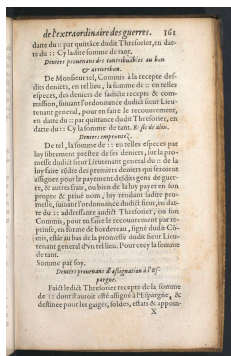 de l'extraordinaire des guerres. 161
datte du :: par quittãce dudit Thresorier, en dat-
te du :: Cy ladite somme de tant.
Deniers prouenans des contribuables au ban
& arriereban.
De Monsieur tel, Commis à la recepte des-
dits deniers, en tel lieu, la somme de :: en telles
especes, des deniers de sadicte recepte & com-
mission, suiuant l'ordonnance dudict sieur Lieu-
tenant general, pour en faire le recouurement,
en datte du :: par quittance dudit Thresorier, en
datte du :: Cy la somme de tant. Et sic de alijs.
Deniers empruntez.
De tel, la somme de :: en telles especes par
luy librement prestee de ses deniers, sur la pro-
messe dudict sieur Lieutenant general du :: de la
luy faire restablir des premiers deniers qui seroient
assignez pour le payement desdits gens de guer-
re, & autres frais, ou bien de la luy payer en son
propre & priué nom, luy rendant sadite pro-
messe, suiuant l'ordonnance dudict sieur, en dat-
te du :: addressante audict Thresorier, ou son
Commis, pour en faire le recouurement par re-
prinse, en forme de bordereau, signé dudit Cõ-
mis, estãt au bas de la promesse dudit sieur Lieu-
tenant general d'vn tel lieu. Pour cecy la somme
de tant.
Somme par soy.
Deniers prouenans d'assignation à l'es-
pargne.
Faict ledict Thresorier recepte de la somme
de :: dont il auroit esté assigné à l'Espargne, &
destinee pour les gages, soldes, estats & appoin-
X